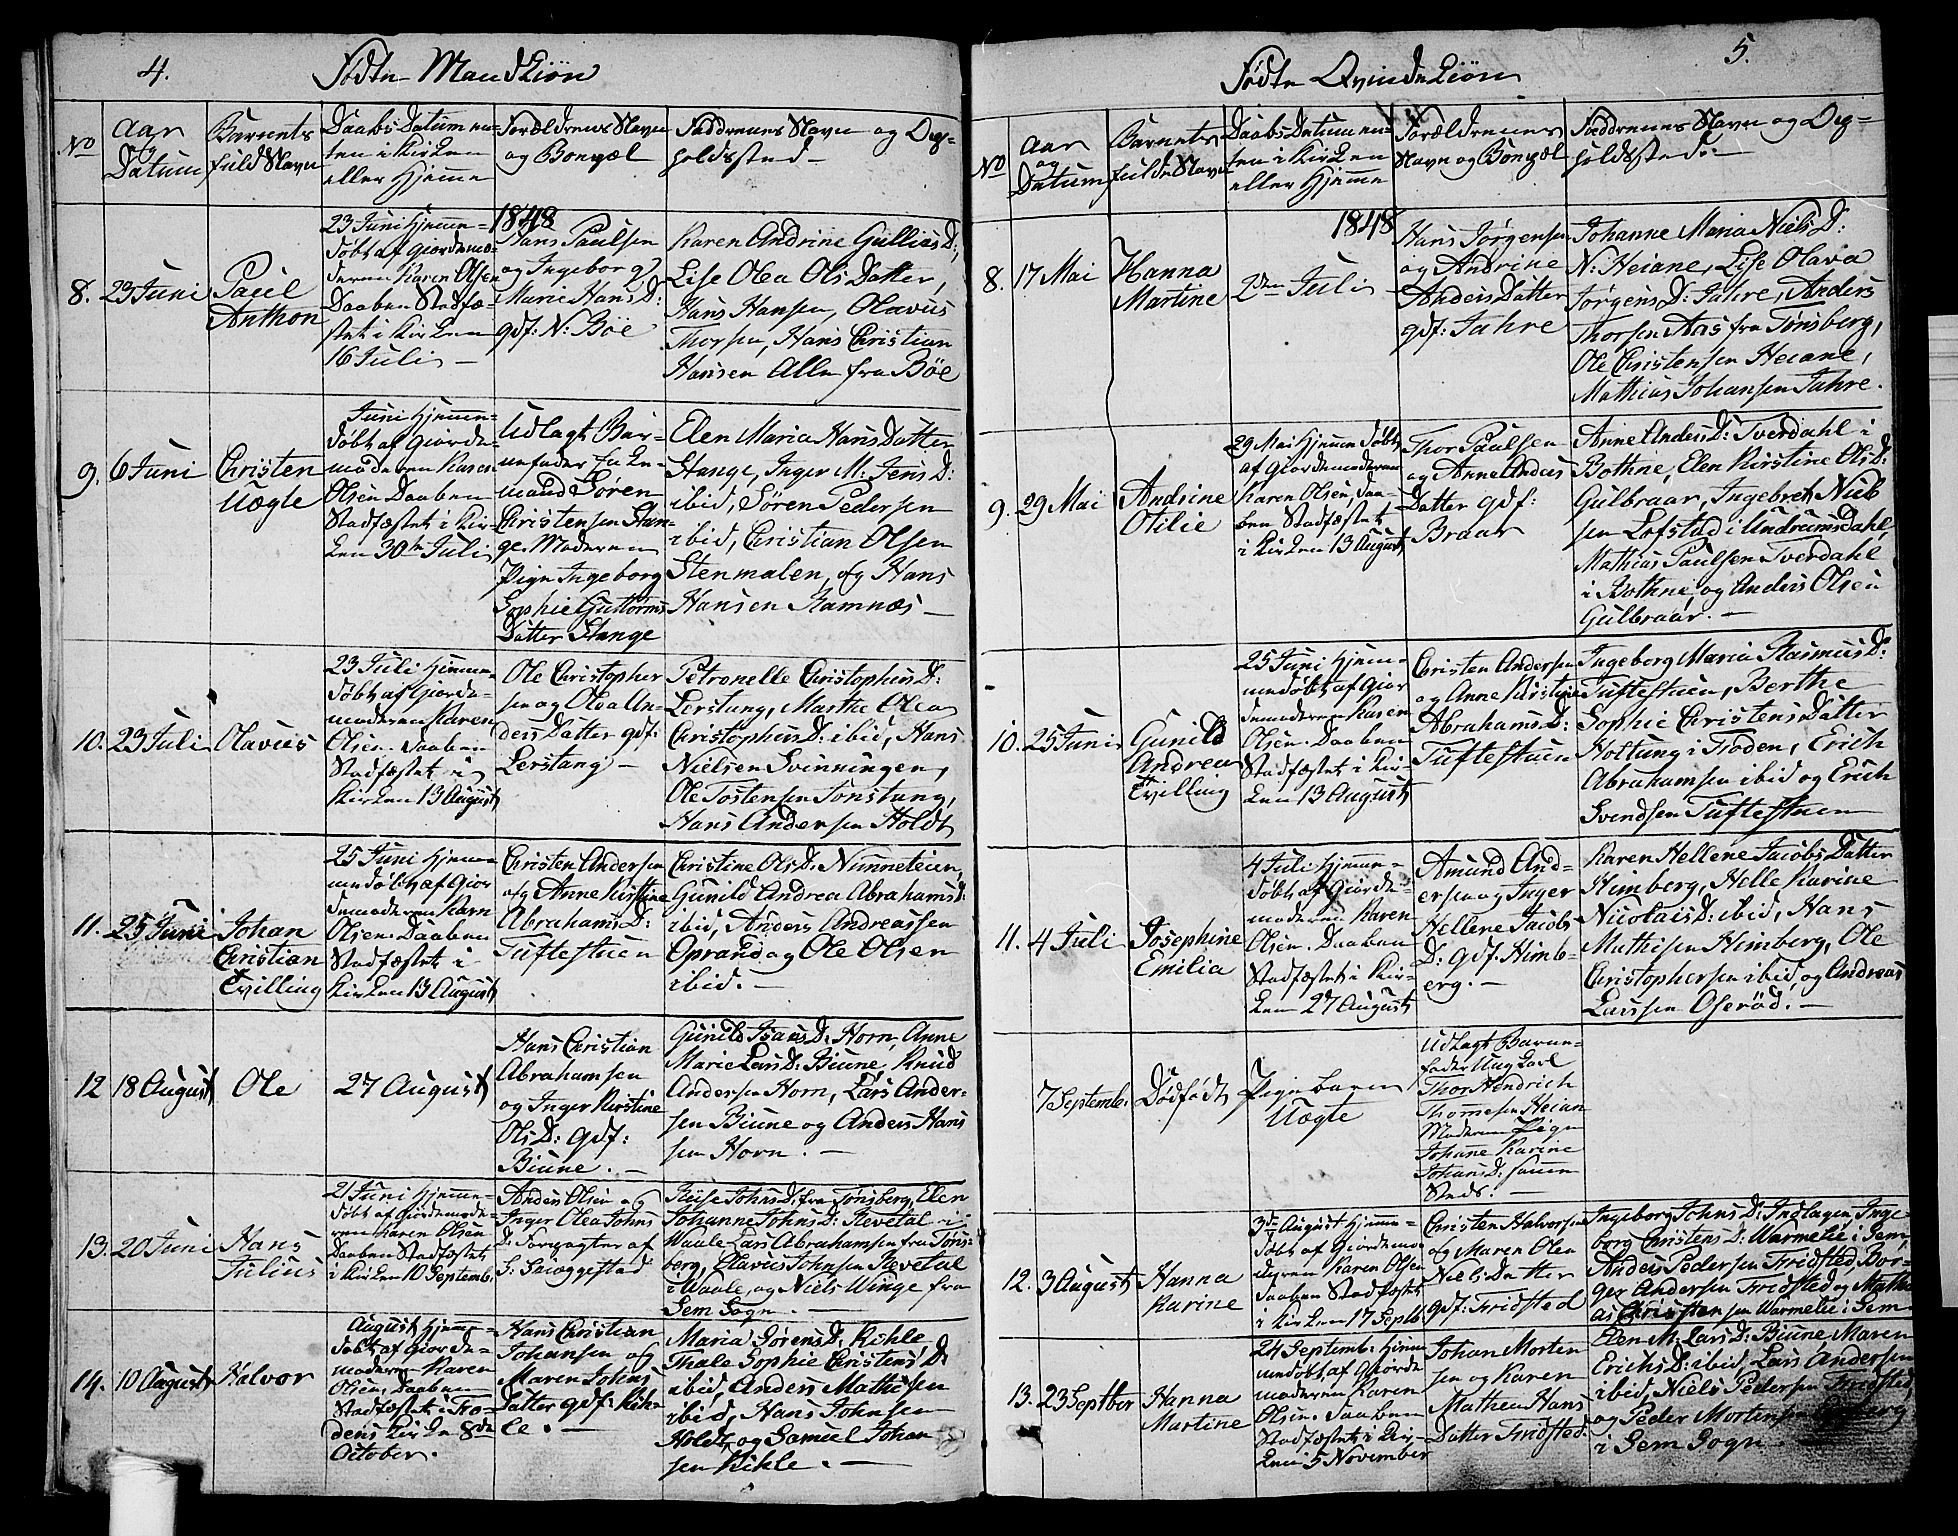 4.
Fødte Mandkiøn
No
Aar og Datum
Barnets fuld Navn
Daabs Datum en-
ten i Kirken
eller Hjemme
Forældrenes Navn
og Bopæl
Faddrenes Navn og Op-
holdssted
1848
8.
23 Juni
Paul
Anthon
23 Juni Hjemme-
døbt af Giordemo-
deren Karen Olsen
Daaben Stadfæ-
stet i Kirken
16 Juli
Hans Paulsen
og Ingeborg
Marie Hans D:
gdf: N: Böe
Karen Andrine Gullius D:,
Lise Olea Ols Datter,
Hans Hansen, Olavus
Thorsen, Hans Christian
Hansen Alle fra Böe
9.
6 Juni
Christen
Uægte
Juni Hjemme-
døbt af Giorde-
moderen Karen
Olsen Daaben
Stadfæstet i Kir-
ken 30te Juli
Udlagt Bar-
nefader
Sören
Christensen Stan-
ge. Moderen
Pige Ingeborg
Sophie Guttorms
Datter Stange
Elen Maria Hans Datter
Stange, Inger M: Jens D:
ibid, Sören Pedersen
ibid, Christian Olsen
Stenmalen, og Hans
Hansen Ramnæs
10.
23 Juli
Olavus
23 Juli Hjemme-
døbt af Giorde-
moderen Karen
Olsen. Daaben
Stadfæstet i
Kirken 13 August
Ole Christopher
sen og Olea An-
ders Datter gdf:
Lerstang
Petronelle Christophers D:
Lerstang, Marthe Olea
Christophers D: ibid, Hans
Nielsen Svinningen,
Ole Tostensen Tonstang,
Hans Andersen Holdt
11.
25 Juni
Johan
Christian
Tvilling
25 Juni Hjem-
medøbt af Gior
demoderen Karn
Olsen. Daaben
Stadfæstet i
Kirken 13 August
Christen Andersen
og Anne Kirstine
Abrahams D:
Tuftestuen
Christine Ols D: Nunneteien,
Gunild Andrea Abrahams D:
ibid, Anders Andreassen
Oprand og Ole Olsen
ibid.
12
18 August
Ole
27 August
Hans Christian
Abrahamsen
og Inger Kirstine
Ols D: gdf:
Biune.
Gunild Isaks D: Horn, Anne
Marie Lars D: Biune, Knud
Andersen Horn, Lars Ander-
sen Biune og Anders Hans
sen Horn.
13.
20 Juni
Hans
Julius
21 Juni Hjemme-
døbt af Giordemode-
ren Karen Olsen
Daaben Stadfæstet
i Kirken 10 Septemb.
Anders Olsen og
Inger Olea Johns
D: Forpagter af
G: Snæggestad
Johns D: fra Tønsberg, Elen
Johanne Johns D: Revetal i
Waale, Lars Abrahamsen fra Tøns-
berg, Olavus Johnsen Revetal
i Waale, og Niels Winge fra
Sem Sogn.
14.
10 August
Halvor
August Hjemme-
døbt af Giorde-
moderen Karen
Olsen, Daaben
Stadfæstet i Fro-
dens Kirke 8de
October.
Hans Christian
Johansen og
Maren Johns
Datter gdf: Kih-
le.
Maria Sørens D: Kihle,
Thale Sophie Christens D:
ibid, Anders Mathisen
ibid, Hans Johnsen
Holdt, og Samuel Johan
sen Kihle.
5.
Fødte Qvindekiön
No
Aar og Datum
Barnets fulde Navn
Daabs Datum en-
ten i Kirken
eller Hjemme
Forældrenes
Navn og Bopæl
Faddrenes Navn og Op-
holdssted.
1848
8.
17 Mai
Hanna
Martine
2den Juli
Hans Jørgensen
og Andrine
Anders Datter
gdf: Jahre
Johanne Maria Niels D:
N: Heiane, Lise Olava
Jørgens D: Jahre, Anders
Thorsen Aas fra Tønsberg,
Ole Christensen Heiane,
Mathias Johansen Jahre.
9.
29 Mai
Andrine
Otilie
29 Mai Hjemme døbt
af Giordemoderen
Karen Olsen, Daa-
ben Stadfæstet
i Kirken 13 August
Thor Paulsen
og Anne Anders
Datter gdf:
Braar
Anne Anders D: Tverdahl i
Bothne, Elen Kirstine Ols D:
Gulbraar, Ingebret Niel-
sen Lofstad i Undrumsdahl,
Mathias Paulsen Tverdahl
i Bothne, og Anders Olsen
Gulbraar.
10.
25 Juni
Gunild
Andrea
Tvilling
25 Juni Hjem-
medøbt af Gior
demoderen Karen
Olsen. Daaben
Stadfæstet i Kir-
ken 13 August
Christen Andersen
og Anne Kirstine
Abrahams D:
Tuftestuen
Ingeborg Maria Rasmus D:
Tuftestuen, Berthe
Sophie Christens Datter
Holtung i Froden, Erich
Abrahamsen ibid og Erich
Svendsen Tuftestuen
11.
4 Juli
Josephine
Emilia
4 Juli Hjemme-
døbt af Giorde-
moderen Karen
Olsen. Daaben
Stadfæstet i Kir-
ken 27 August
Amund And-
ersen og Inger
Hellene Jacobs
D: gdf: Himb-
erg.
Karen Hellene Jacobs Datter
Himberg, Helle Karine
Nicolais D: ibid, Hans
Mathisen Himberg, Ole
Christophersen ibid, og Andreas
Larssen Oserød.
7 Septemb.
Dødfødt
Pigebarn
Uægte
Udlagt Barne-
fader Ung Carl
Thor Hendrich
Thomesen Heian
Moderen Pige
Johane Karine
Johans D: samme
Steds.
12.
3 August
Hanna
Karine
3die August Hjemme-
døbt af Giordemo
deren Karen Olsen
Daaben Stadfæstet
i Kirken 17 Septb.
Christen Halvorsen
og Maren Olea
Niels Datter
gdf: Fridsted
Ingeborg Johns D: Indlagen, Inge-
borg Christens D: Warmelie i Sem,
Anders Pedersen Fridsted, Bor-
ger Andersen Fridsted og Mathi
as Christensen Warmelie i Sem
13.
23 Septbor
Hanna
Martine
24 Septemb. Hjem
medøbt af Giorde
moderen Karen
Olsen. Daaben
Stadfæstet i Kir-
ken 5 November
Johan Morten
sen og Karen
Mathea Hans
Datter Fridsted
Elen M: Lars D: Biune, Maren
Erichs D: ibid, Lars Andersen
ibid, Niels Pedersen Fridsted,
og Peder Mortensen
i Sem Sogn.